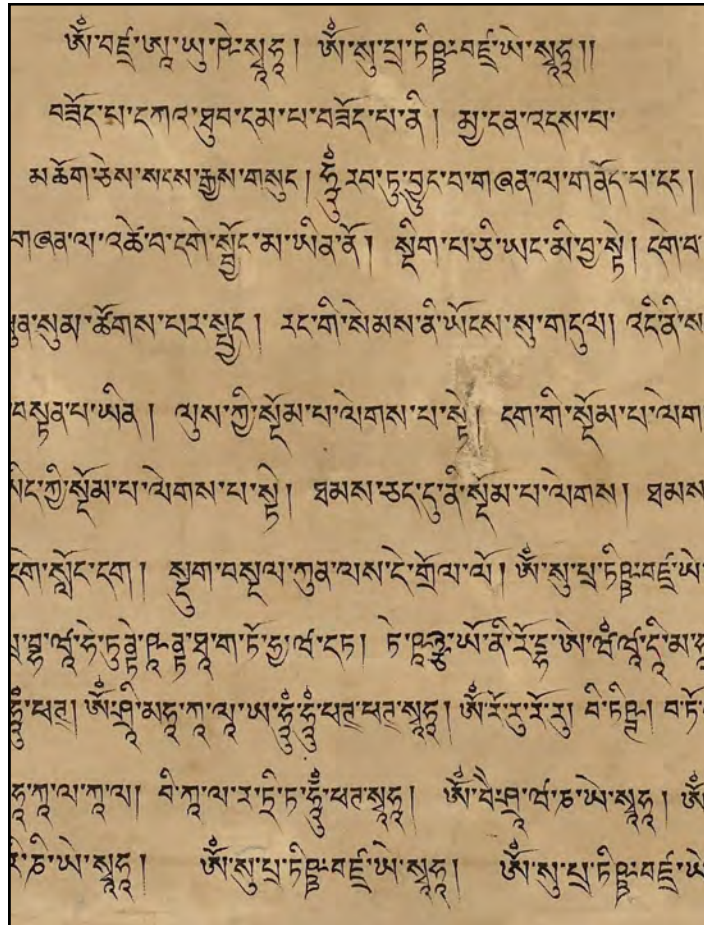 ༀ་བཛྲ་ཨཱ་ཡུ་ཥེ་སྭཱཧཱ། ༀ་སུ་པྲ་ཏིཥྛ་བཛྲ་ཡེ་སྭཱཧཱ།།
བཟོད་པ་དཀའ་ཐུབ་དམ་པ་བཟོད་པ་ནི། མྱ་ངན་འདས་པ་
མཆོག་ཅེས་སངས་རྒྱས་གསུང། ཧཱུྃ་རབ་ཏུ་བྱུང་བ་གཞན་ལ་གནོད་པ་དང།
གཞན་ལ་འཚེ་བ་དགེ་སྦྱོང་མ་ཡིན་ནོ། སྡིག་པ་ཅི་ཡང་མི་བྱ་སྟེ། དགེ་བ་
སུམ་ཚོགས་པར་སྤྱད། རང་གི་སེམས་ནི་ཡོངས་སུ་གདུལ། འདི་ནི་ས
བསྟན་པ་ཡིན། ལུས་ཀྱི་སྡོམ་པ་ལེགས་པ་སྟེ། ངག་གི་སྡོམ་པ་ལེག
ཡིད་ཀྱི་སྡོམ་པ་ལེགས་པ་སྟེ། ཐམས་ཅད་དུ་ནི་སྡོམ་པ་ལེགས། ཐམས
དགེ་སློང་དག། སྡུག་བསྔལ་ཀུན་ལས་དེ་གྲོལ་ལོ། ༀ་སུ་པྲ་ཏིཥྛ་བཛྲ་ཡེ་
ཧེ་ཏུནྟེ་ཥཱནྟ་ཐཱ་ག་ཏོ་ཧྱ་ཝ་དཏ། ཏེ་ཥཱཉྩ་ཡོ་ནི་རོདྷ་ཨེ་ཝཾ་ཝཱ་དཱི་མ་
ཧཱུྃ་ཕཊ། ༀ་ཤྲཱི་མཧཱ་ཀཱ་ལཱ་ཡ་ཧཱུྃ་ཧཱུྃ་ཕཊ་ཕཊ་སྭཱཧཱ། ༀ་རོ་རུ་རོ་རུ། བི་ཏིཥྛ། བ་ཏོ་
ཧཱ་ཀཱ་ལ་ཀཱ་ལ། བི་ཀཱ་ལ་རཱ་ཏྲི་ཏ་ཧཱུྃ་ཕཊ་སྭཱཧཱ། ༀ་བཻ་ཤྲཱ་ཝ་ཎ་ཡེ་སྭཱཧཱ། ༀ
ཎི་ཡེ་སྭཱཧཱ། ༀ་སུ་པྲ་ཏིཥྛ་བཛྲ་ཡེ་སྭཱཧཱ། ༀ་སུ་པྲ་ཏིཥྛ་བཛྲ་ཡེ